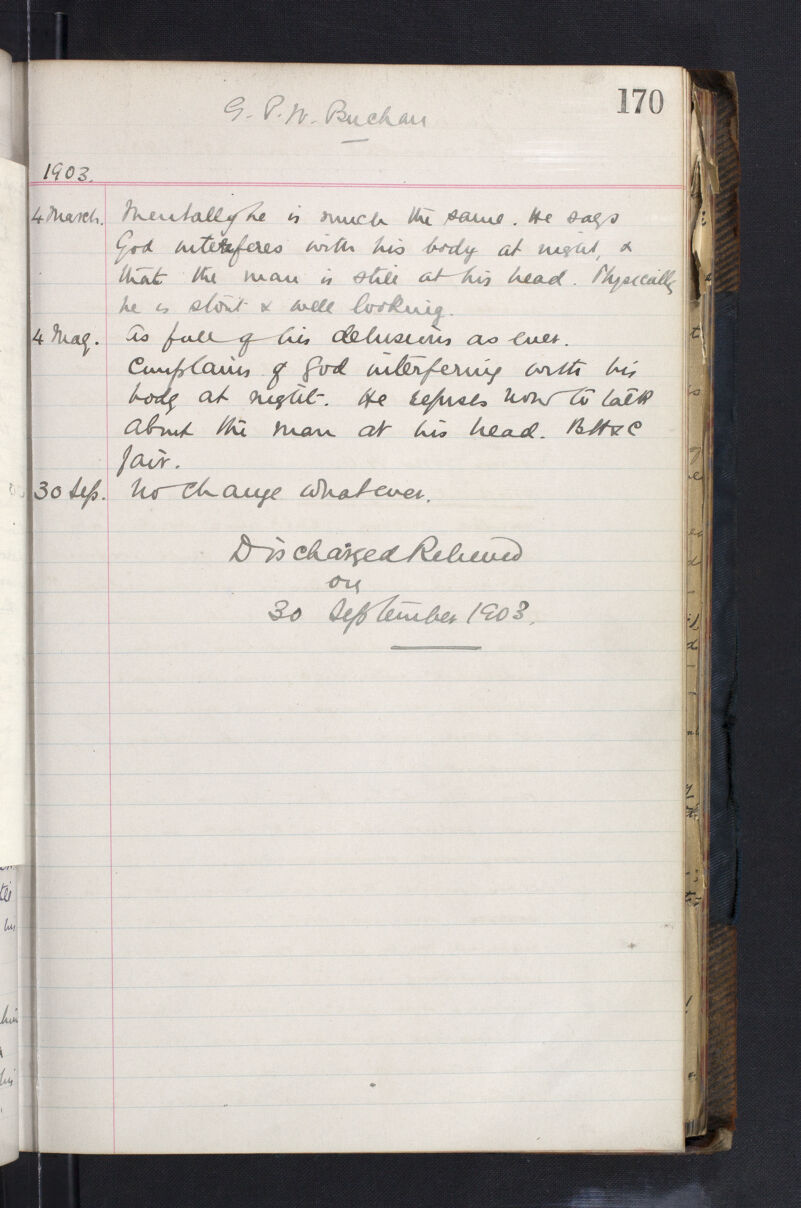 170
G. P. W. Buchan
1903.
4 March. Mentally he is much the same. He says
God interferes with his body at night, &
that the man is still at his head. Physically
he is stout & well looking.
4 May. As full of his delusions as ever.
Complains of God interfering with his
body at night. He refuses now to talk
about the man at his head. BH&C
fair.
30 Sep. No change whatever.
Discharged Relieved
on
30 September 1903.